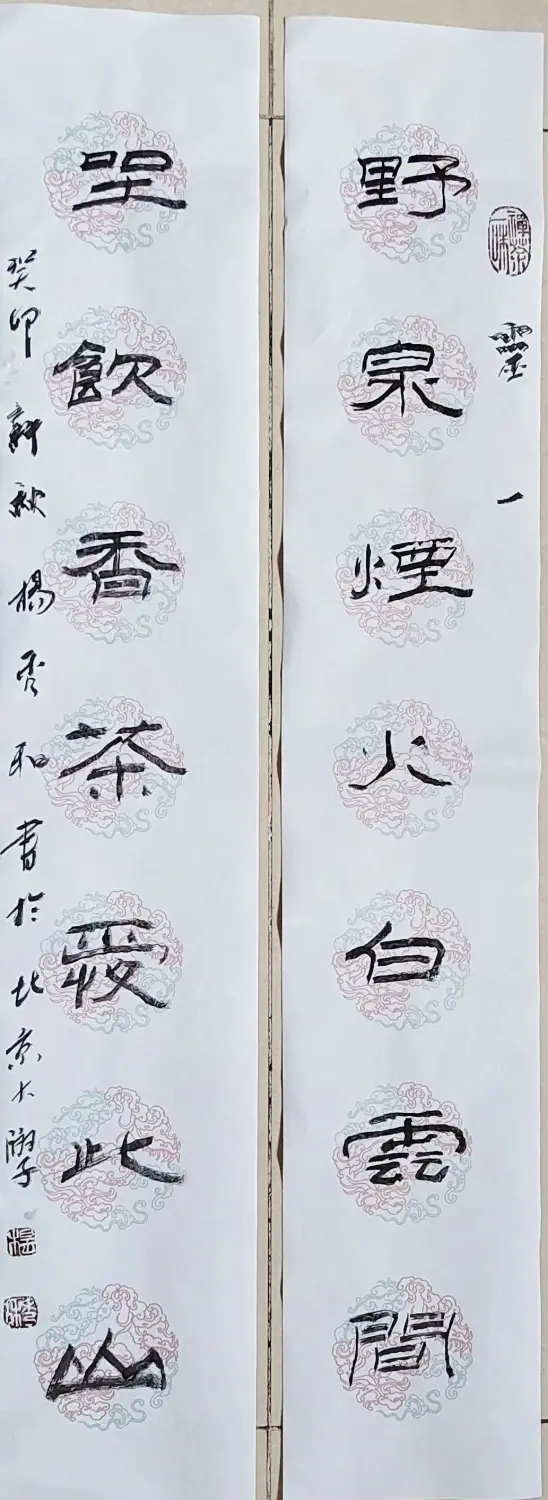 野泉煙火白雲間
坐飲香茶愛此山
靈一
癸卯新秋楊秀和書於北京大學
禪茶一味